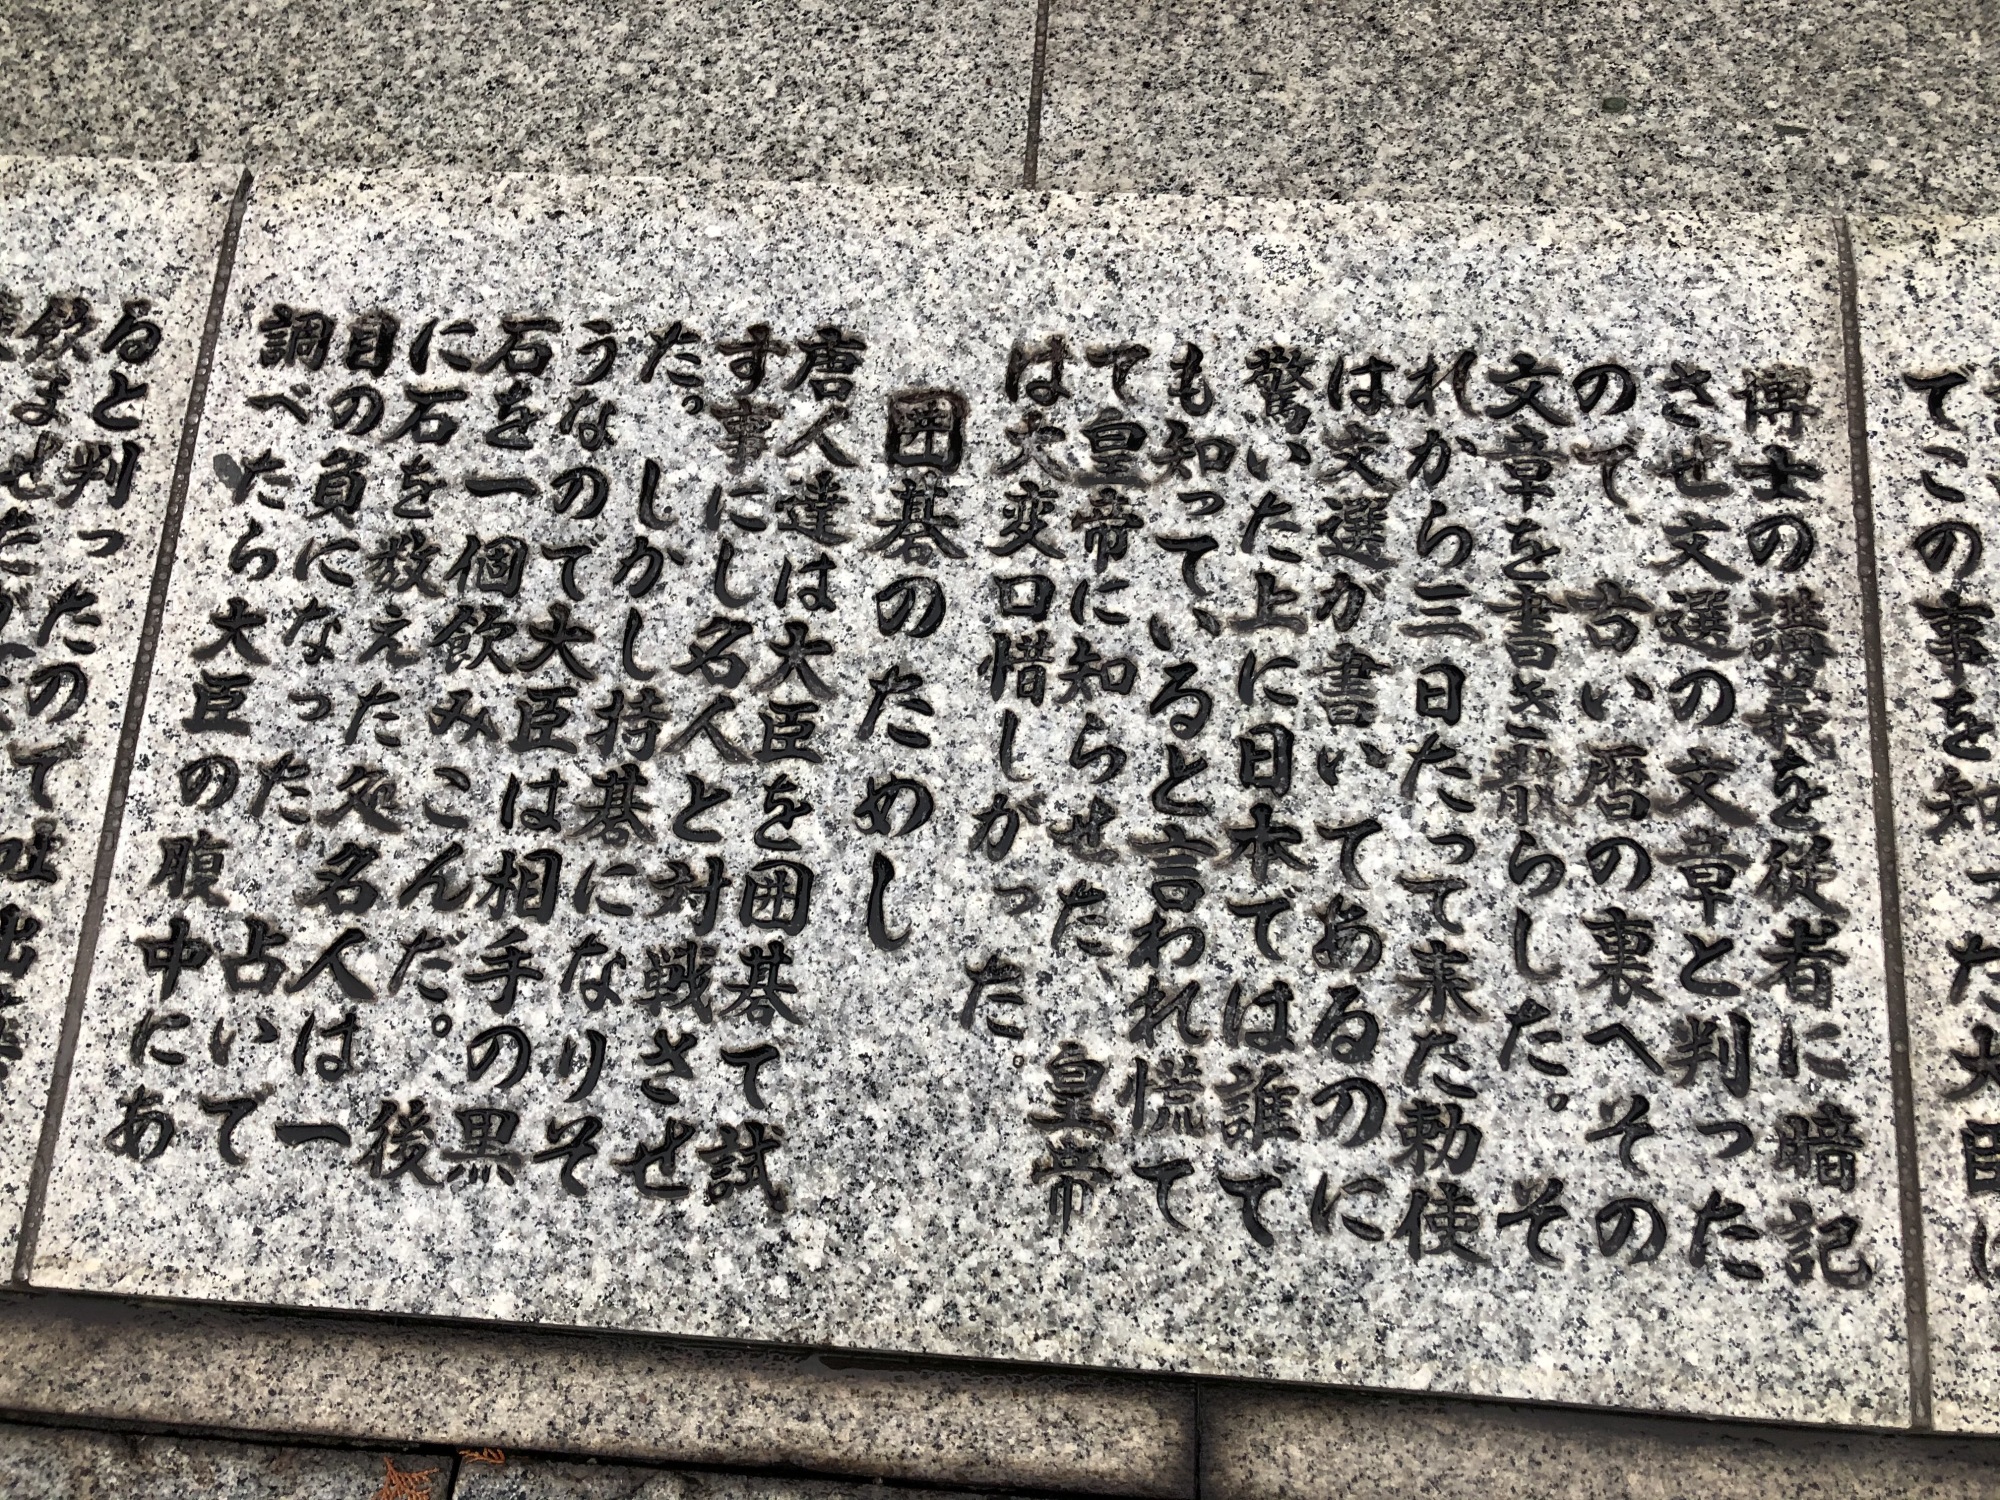 でこの事を知った大臣は
博士の講義を従者に暗記
させ文選の文章と判った
ので 古い暦の裏へその
文章を書き散らした。そ
れから三日たって来た勅使
は文選が書いてあるのに
驚いた上に日本では誰で
も知っていると言われ慌て
て皇帝に知らせた、皇帝
は大変口惜しがった。
囲碁のためし
唐人達は大臣を囲碁で試
す事にし名人と対戦させ
た。しかし持碁になりそ
うなので大臣は相手の黒
石を一個飲みこんだ。後
に石を数えた処名人は一
目の負になった。占いで
調べたら大臣の腹中にあ
ると判ったので吐出
飲ませ